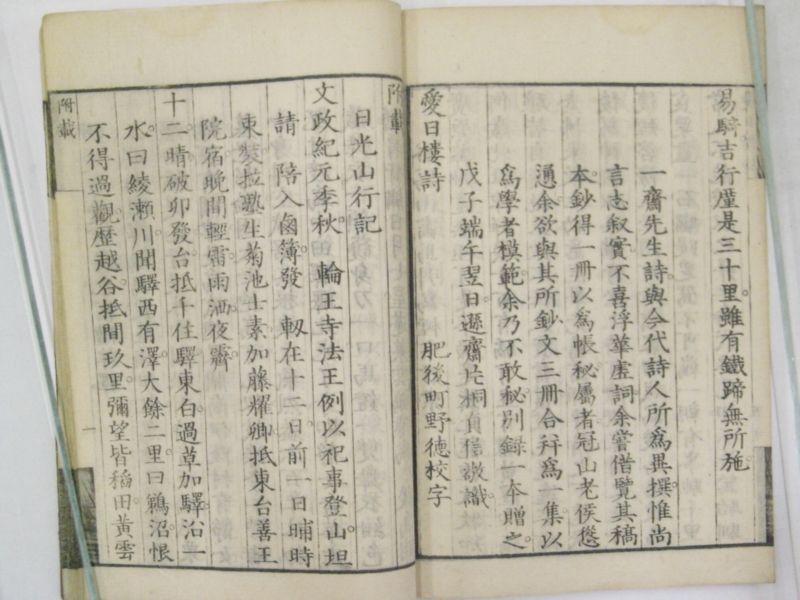 昜騎吉行廑是三十里。雖有鐵蹄無所施。
一齋先生詩與今代詩人所爲異撰惟尚
言志叙實不喜浮華虛詞余嘗借覽其稿
本鈔得一冊以爲帳秘屬者冠山老侯慫
慂余欲與其所鈔文三冊合并爲一集以
爲學者模範余乃不敢秘別録一本贈之
戊子端午翌日遜齋片桐貞信識
肥後町野德校字
愛日樓詩
附載
日光山行記
文政紀元季秋。輪王寺法王例以祀事登山。坦
請陪入鹵簿發軔在十二日。前一日晡時
束裝拉塾生菊池士素加藤耀卿抵東台善王
院宿晚間輕雷雨洒夜霽
十二晴破卯發台抵千住驛東白過草加驛沿一
水曰綾瀬川聞驛西有澤大餘二里曰鶴沼恨
不得過觀歷越谷抵間玖里。彌望皆稻田黃雲
附載
一